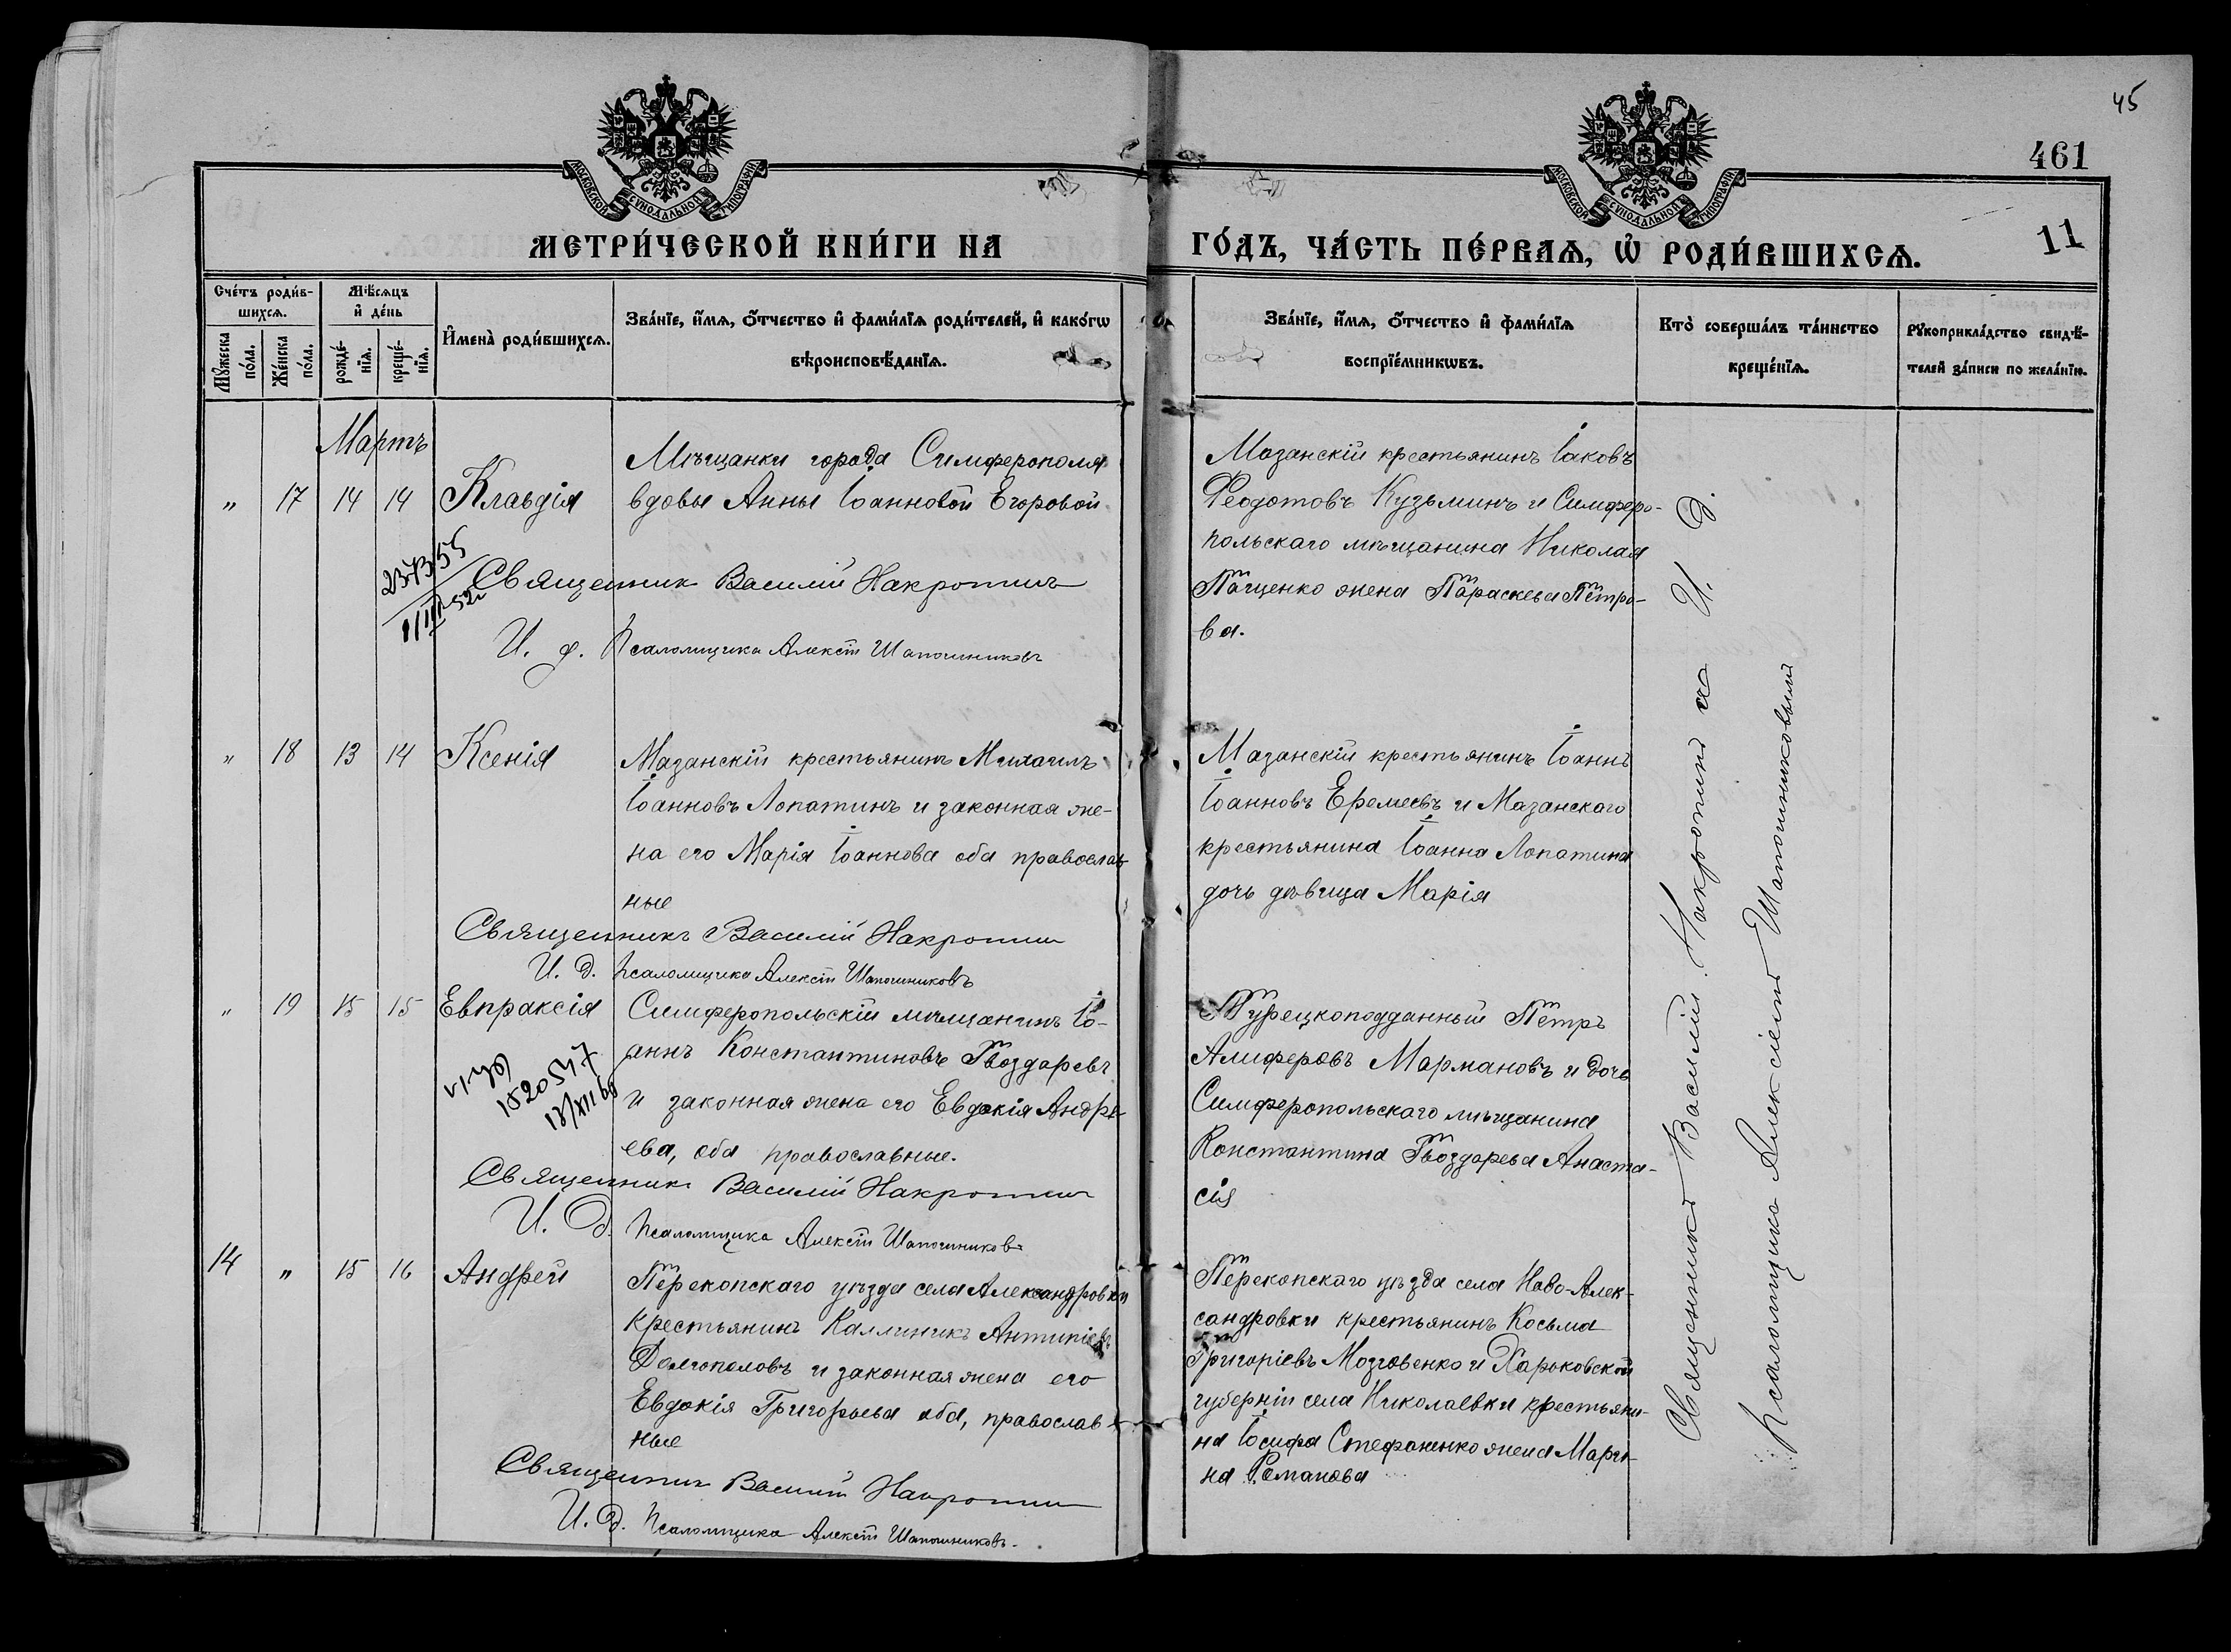 45
461
11
МОСКОВСКОЙ СУНОДАЛЬНОЙ ТИПОГРАФІИ
МОСКОВСКОЙ СУНОДАЛЬНОЙ ТИПОГРАФІИ
МЕТРИ́ЧЕСКОЙ КНИ́ГИ НА
ГО́ДЪ, ЧА́СТЬ ПЕ́РВАѦ, Ѡ҆ РОДИ́ВШИХСѦ.
Сче́тъ роди́в-
шихсѧ.
Мѣ́сѧцъ
и҆ де́нь
Мꙋ́жеска
по́ла.
Же́нска
по́ла.
рожде́-
нїѧ.
креще́-
нїѧ.
И҆мена̀ роди́вшихсѧ.
Зва́нїе, и҆́мѧ, ѻ҆́тчество и҆ фами́лїѧ роди́телей, и҆ како́гѡ
вѣроисповѣ́данїѧ.
Зва́нїе, и҆́мѧ, ѻ҆́тчество и҆ фами́лїѧ
воспрїе́мникѡвъ.
Кто̀ соверша́лъ та́инство
креще́нїѧ.
Рꙋкоприкла́дство свидѣ́-
телей за́писи по жела́нїю.
Мартъ
" 17 14 14 Клавдія
Мѣщанки города Симферополя
вдовы Анны Іоанновой Егоровой
Священник Василій Накропинъ
И. д. Псаломщика Алексѣй Шапошниковъ
237355
1/III-52г
Мазанскій крестьянинъ Іаковъ
Феодотовъ Кузьминъ и Симферо-
польскаго мѣщанина Николая
Пащенко жена Параскева Петро-
ва.
" 18 13 14 Ксенія
Мазанскій крестьянинъ Михаилъ
Іоанновъ Лопатинъ и законная же-
на его Марія Іоаннова оба православ-
ные
Священникъ Василій Накропин
И. д. Псаломщика Алексѣй Шапошниковъ
Мазанскій крестьянинъ Іоаннъ
Іоанновъ Еремеевъ и Мазанского
крестьянина Іоанна Лопатина
дочь дѣвица Марія
" 19 15 15 Евпраксія
Симферопольскій мѣщанинъ Іо-
аннъ Константиновъ Гвоздаревъ
и законная жена его Евдокія Андре-
ева, оба православные.
Священникъ Василій Накропин
И. д. Псаломщика Алексѣй Шапошников
Турецкоподданный Петръ
Алиферовъ Мармановъ и дочь
Симферопольскаго мѣщанина
Константина Гвоздарева Анаста-
сія
14 " 15 16 Андрей
Перекопскаго уѣзда села Александровки
крестьянинъ Каллиникъ Антипіевъ
Долгополовъ и законная жена его
Евдокія Григорьева оба, православ-
ные
Священник Василій Накропин
И. д. Псаломщика Алексѣй Шапошниковъ.
Перекопскаго уѣзда села Ново-Алек-
сандровки крестьянинъ Косьма
Григоріевъ Мозговенко и Харьковской
губерніи села Николаевки крестьяни-
на Іосифа Стефаненко жена Мари-
на Романова
Священникъ Василій Накропинъ съ И. д.
Псаломщика Алексіемъ Шапошниковымъ